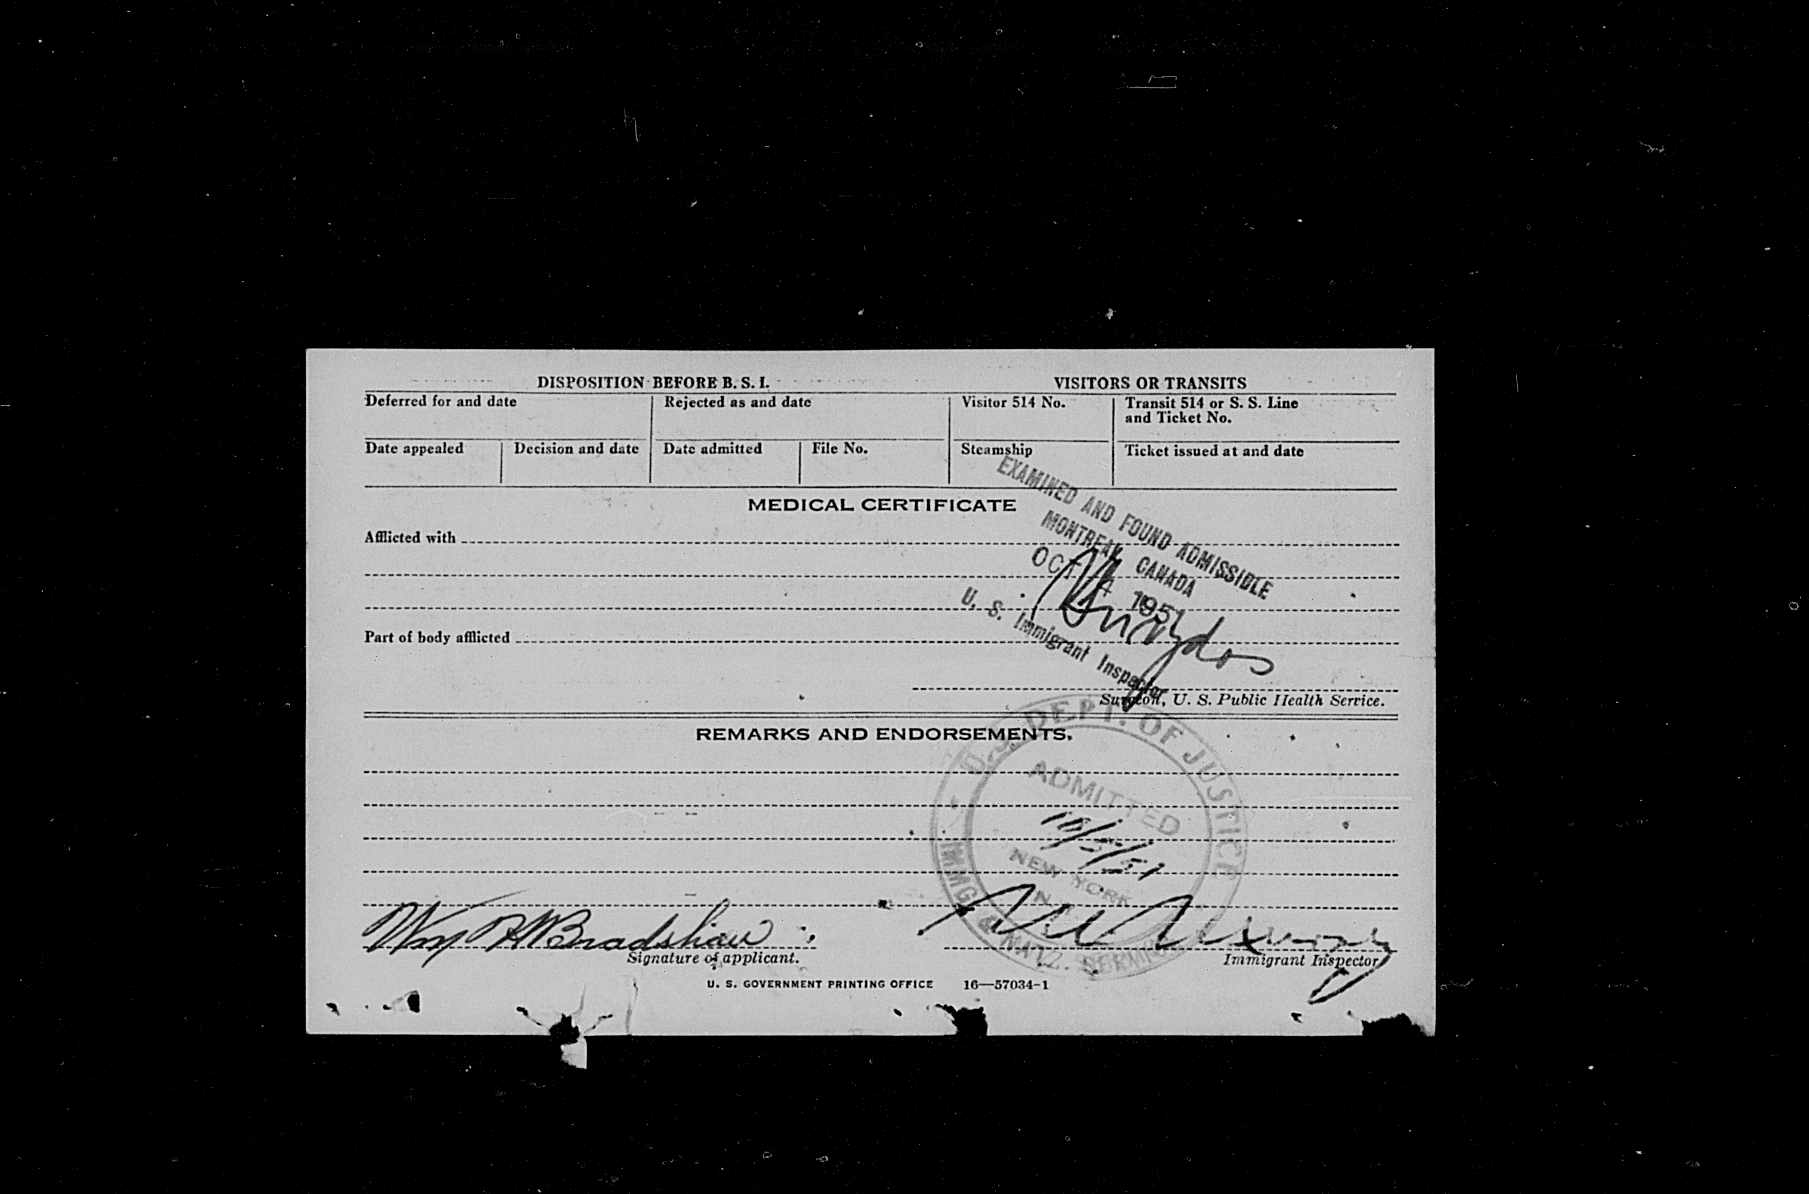 DISPOSITION BEFORE B. S. I.
VISITORS OR TRANSITS
Deferred for and date
Rejected as and date
Visitor 514 No.
Transit 514 or S. S. Line
and Ticket No.
Date appealed
Decision and date
Date admitted
File No.
Steamship
Ticket issued at and date
MEDICAL CERTIFICATE
Afflicted with
EXAMINED AND FOUND ADMISSIBLE
MONTREAL CANADA
OCT 1951
U. S. Immigrant Inspector
Part of body afflicted
Surgeon, U. S. Public Health Service.
REMARKS AND ENDORSEMENTS.
U. S. DEPT. OF JUSTICE
ADMITTED
10/5/51
NEW YORK
N. Y.
IMMG. & NATZ. SERVICE
Wm H Bradshaw
Signature of applicant.
Immigrant Inspector
U. S. GOVERNMENT PRINTING OFFICE 16—57034-1